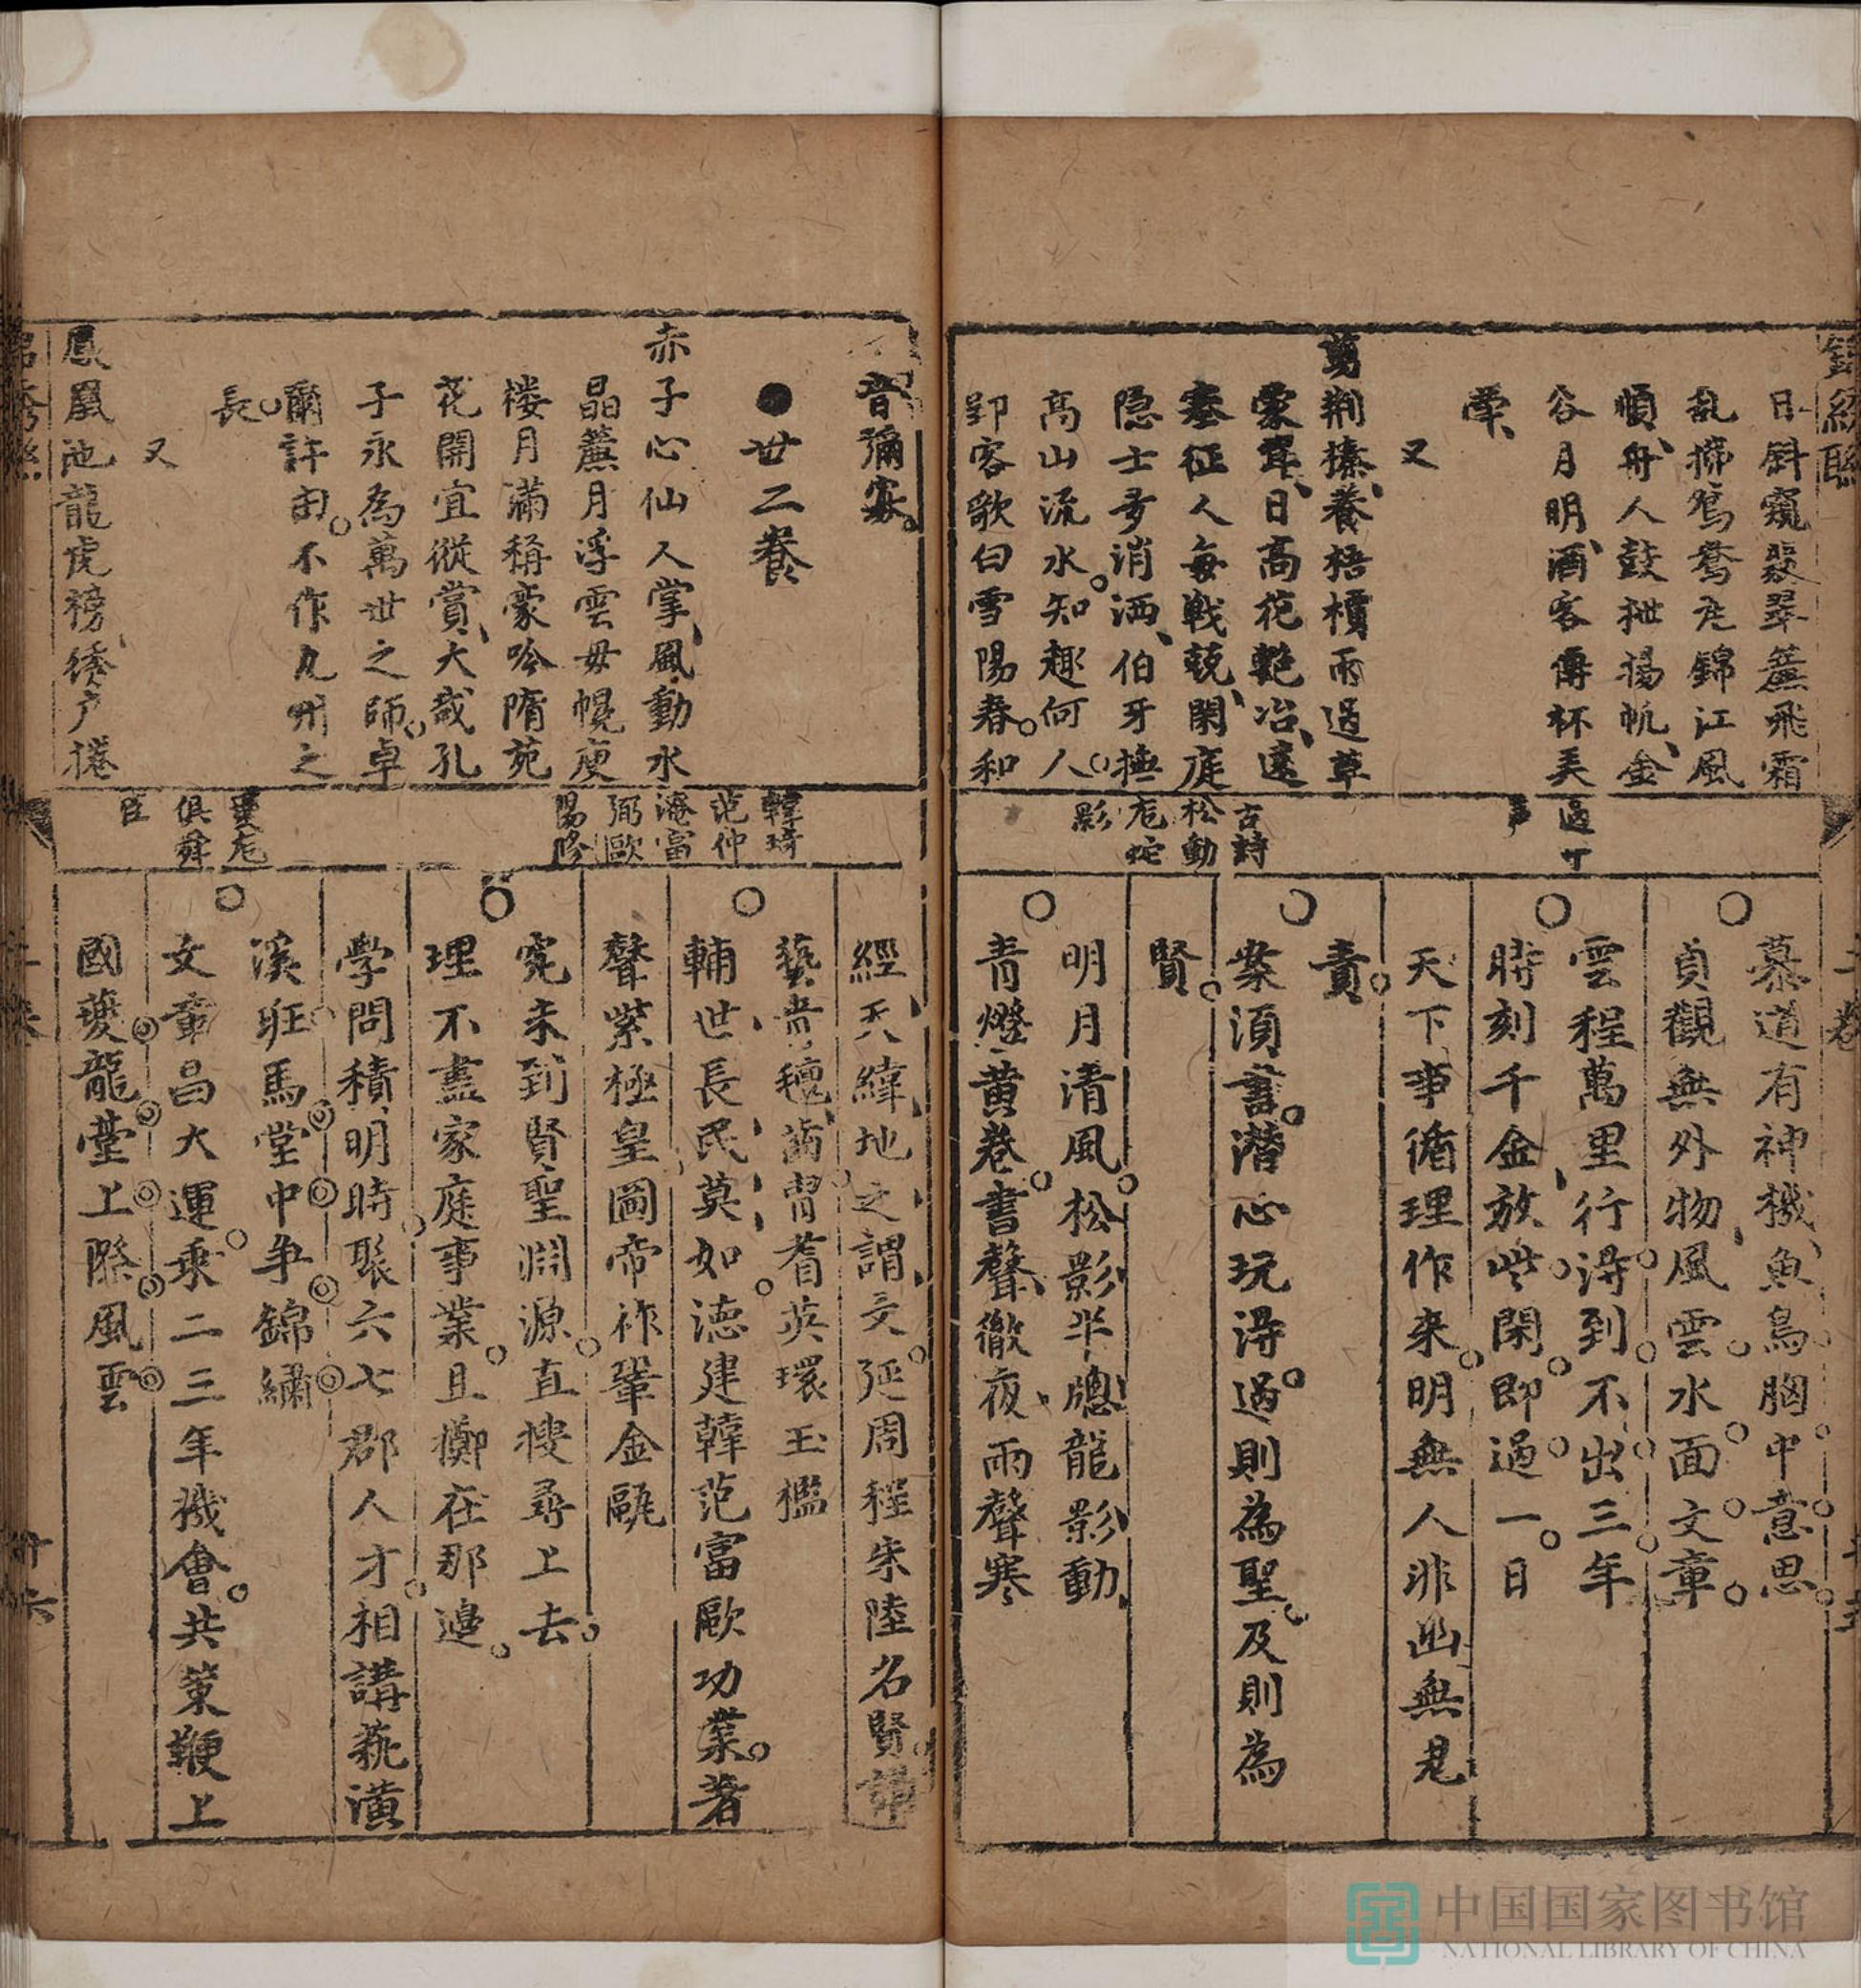 日斜窺翠簾飛霜
亂撲鴛鴦瓦錦江風
順舟人鼓枻揚帆金
谷月明酒客傳杯美
又
剪荆榛養梧檟雨過草
蒙茸日高花艷冶遠
塞征人每戦兢閑庭
隐士多消洒伯牙撫
髙山流水知趣何人
郢客歌白雪陽春和
過丁
古詩
松動
危蛇
影
慕道有神機魚鳥胸中意思
貞觀無外物風雲水面文章
雲程萬里行淂到不出三年
時刻千金放些閑即過一日
天下事循理作来明無人非幽無鬼
責
業須蓄潜心玩淂過則為聖及則為
賢
明月清風松影半牕龍影動
青燈黄卷書聲徹夜雨聲寒
二卷
音彌寡
●廿二養
赤子心仙人掌風動水
晶簾月浮雲毋幌庾
楼月滿稱豪吟隋苑
花開宜縱賞大哉孔
子永為萬世之師卓
爾許由不作九州之
長
又
鳳凰池龍虎榜綉户捲
韓琦
范仲
淹富
弼歐
陽修
夔龙
俱舜
臣
經天緯地之謂文延周程朱陸名賢
藝耆英環玉檻
輔世長民莫如徳建韓范富歐功業著
聲紫極皇圖帝祚鞏金甌
究未到賢聖淵源直搜尋上去
理不盡家庭事業且擲在那邉
學問積明時聚六七郡人才相講藝潢
溪駐馬堂中争錦繡
文章昌大運乗二三年機會共策鞭上
國夔龍臺上際風雲